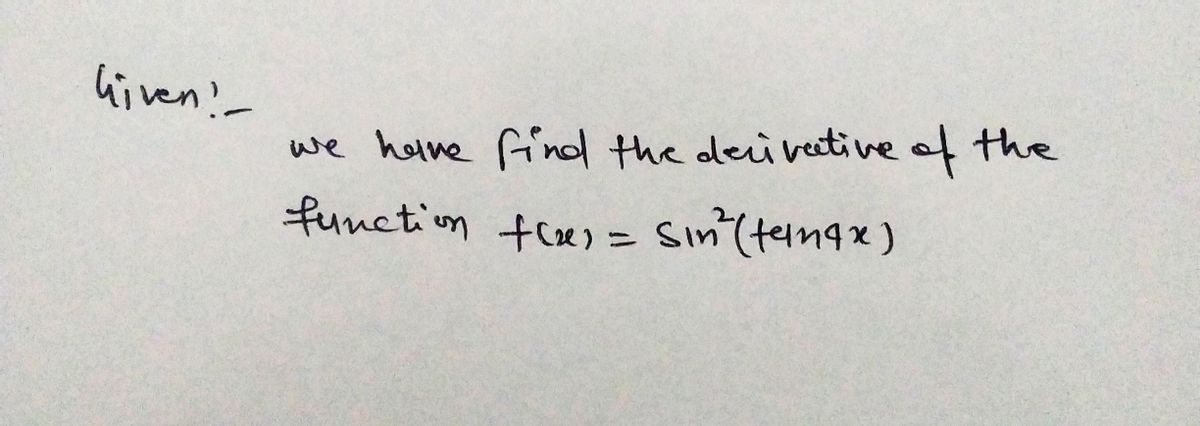 Given:-
we have find the derivative of the
function f(x) = sin²(tan9x)